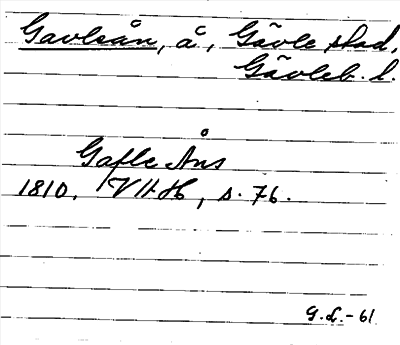 Gavleån, å, Gävle stad.
Gävleb. l.
Gafle Åns
1810. s. 76.
G.L.-61